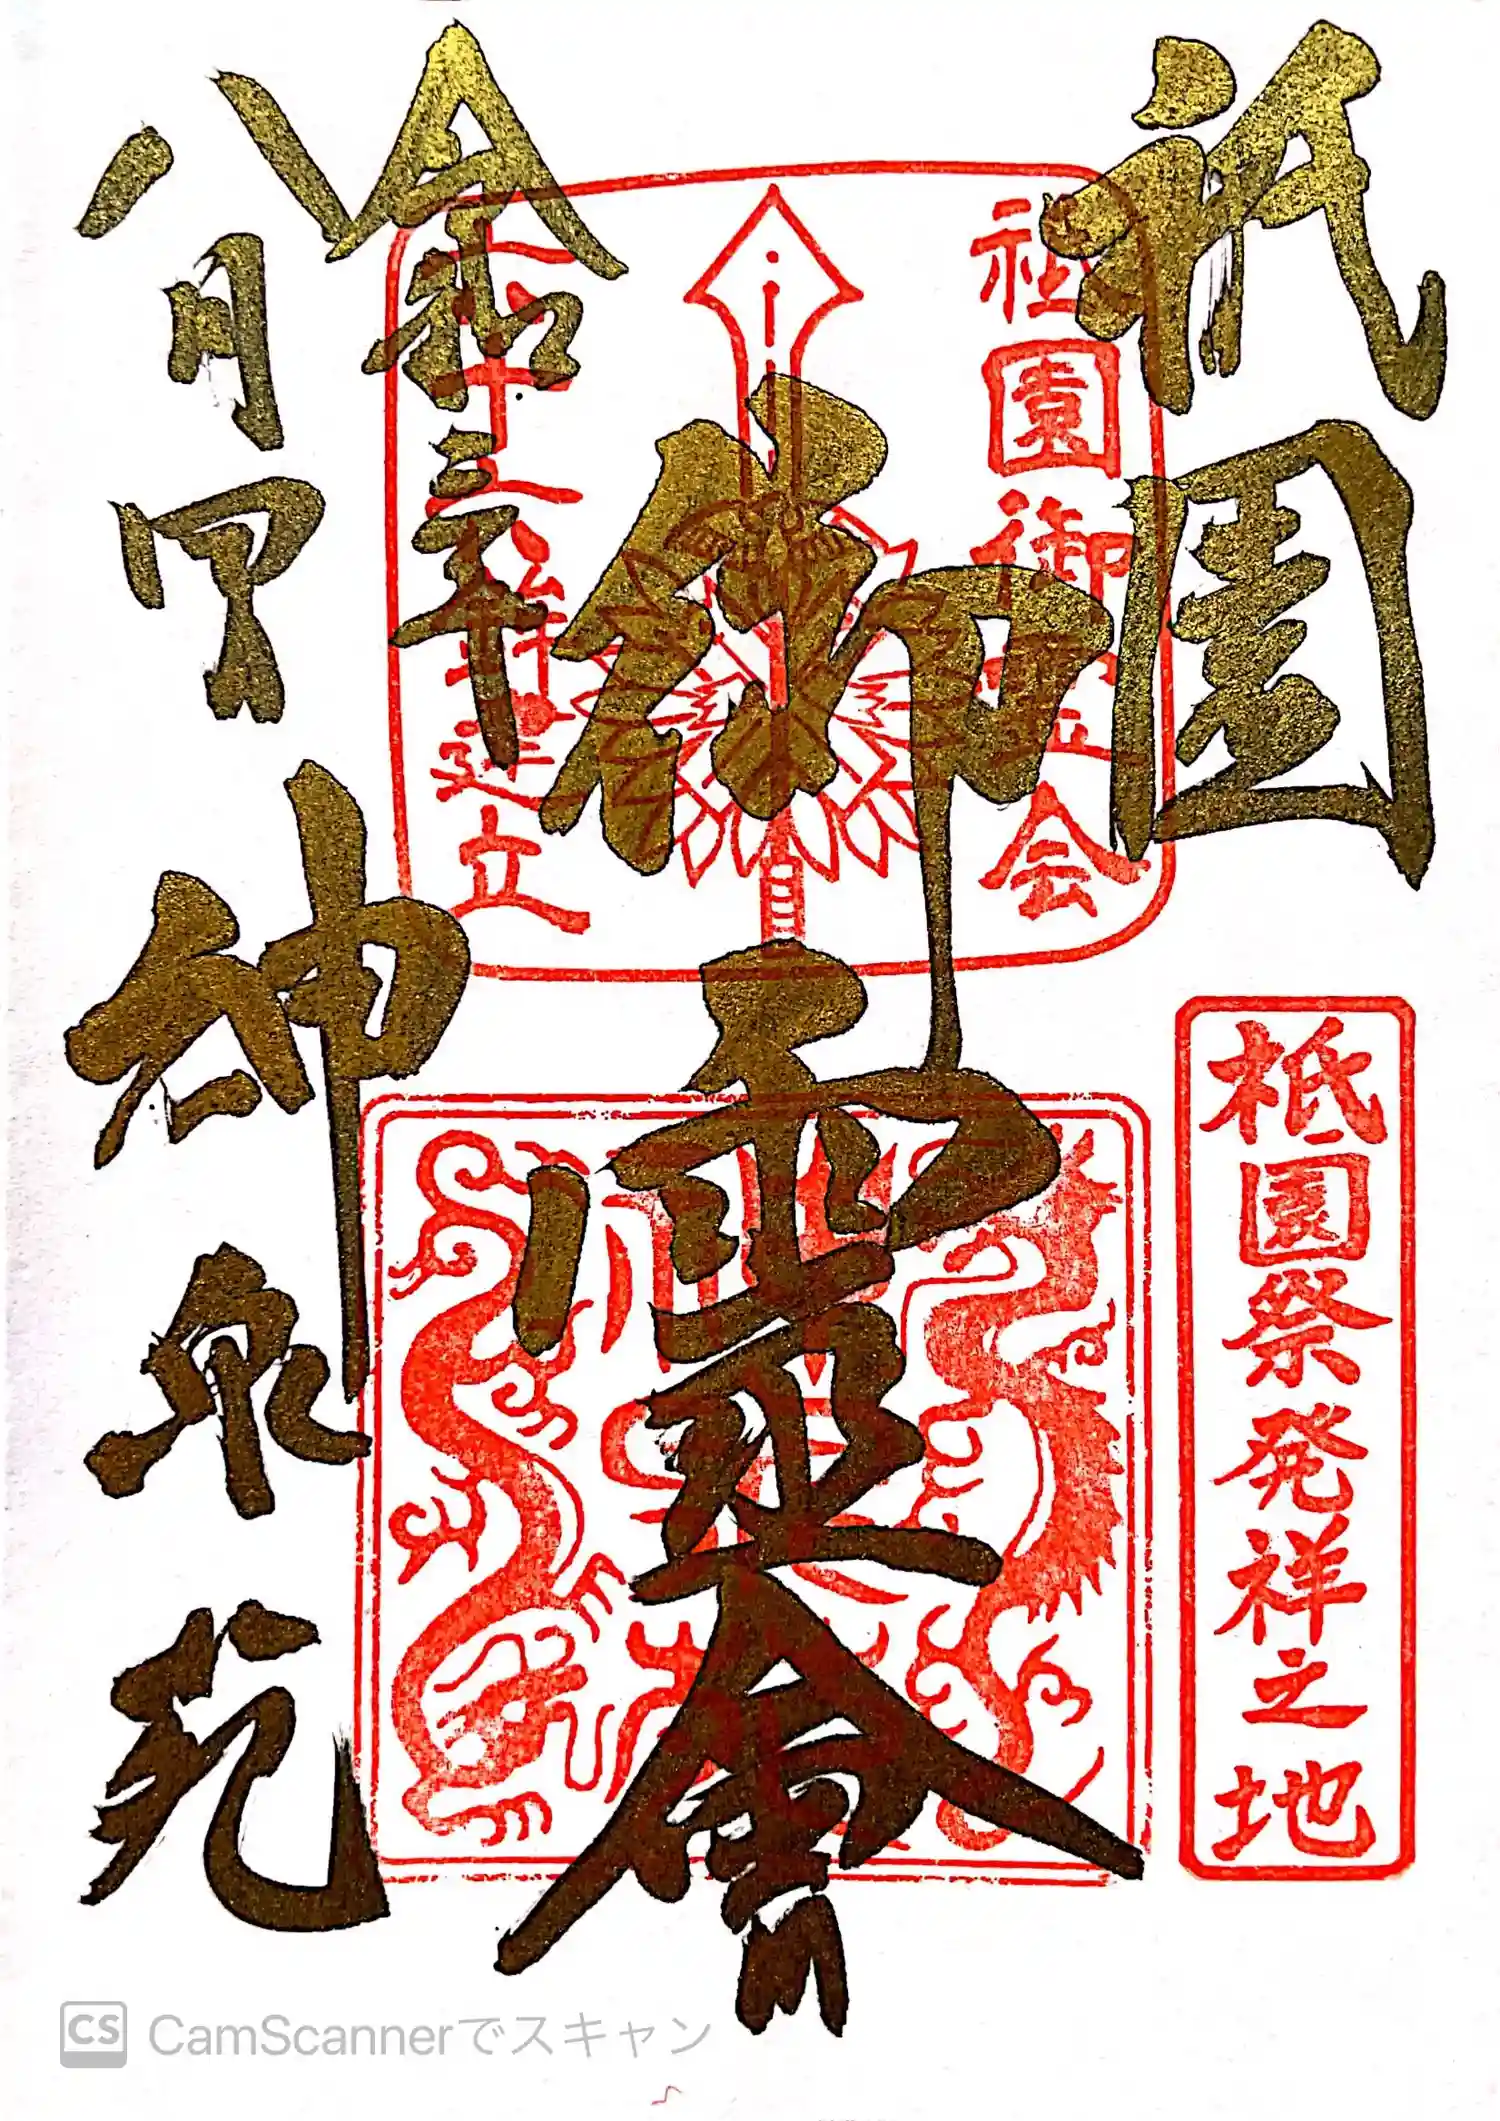 祇園
御霊會
令和三年
八月一日
神泉苑
祇園御霊会
六十六本鉾建立
祇園祭発祥之地
CamScannerでスキャン